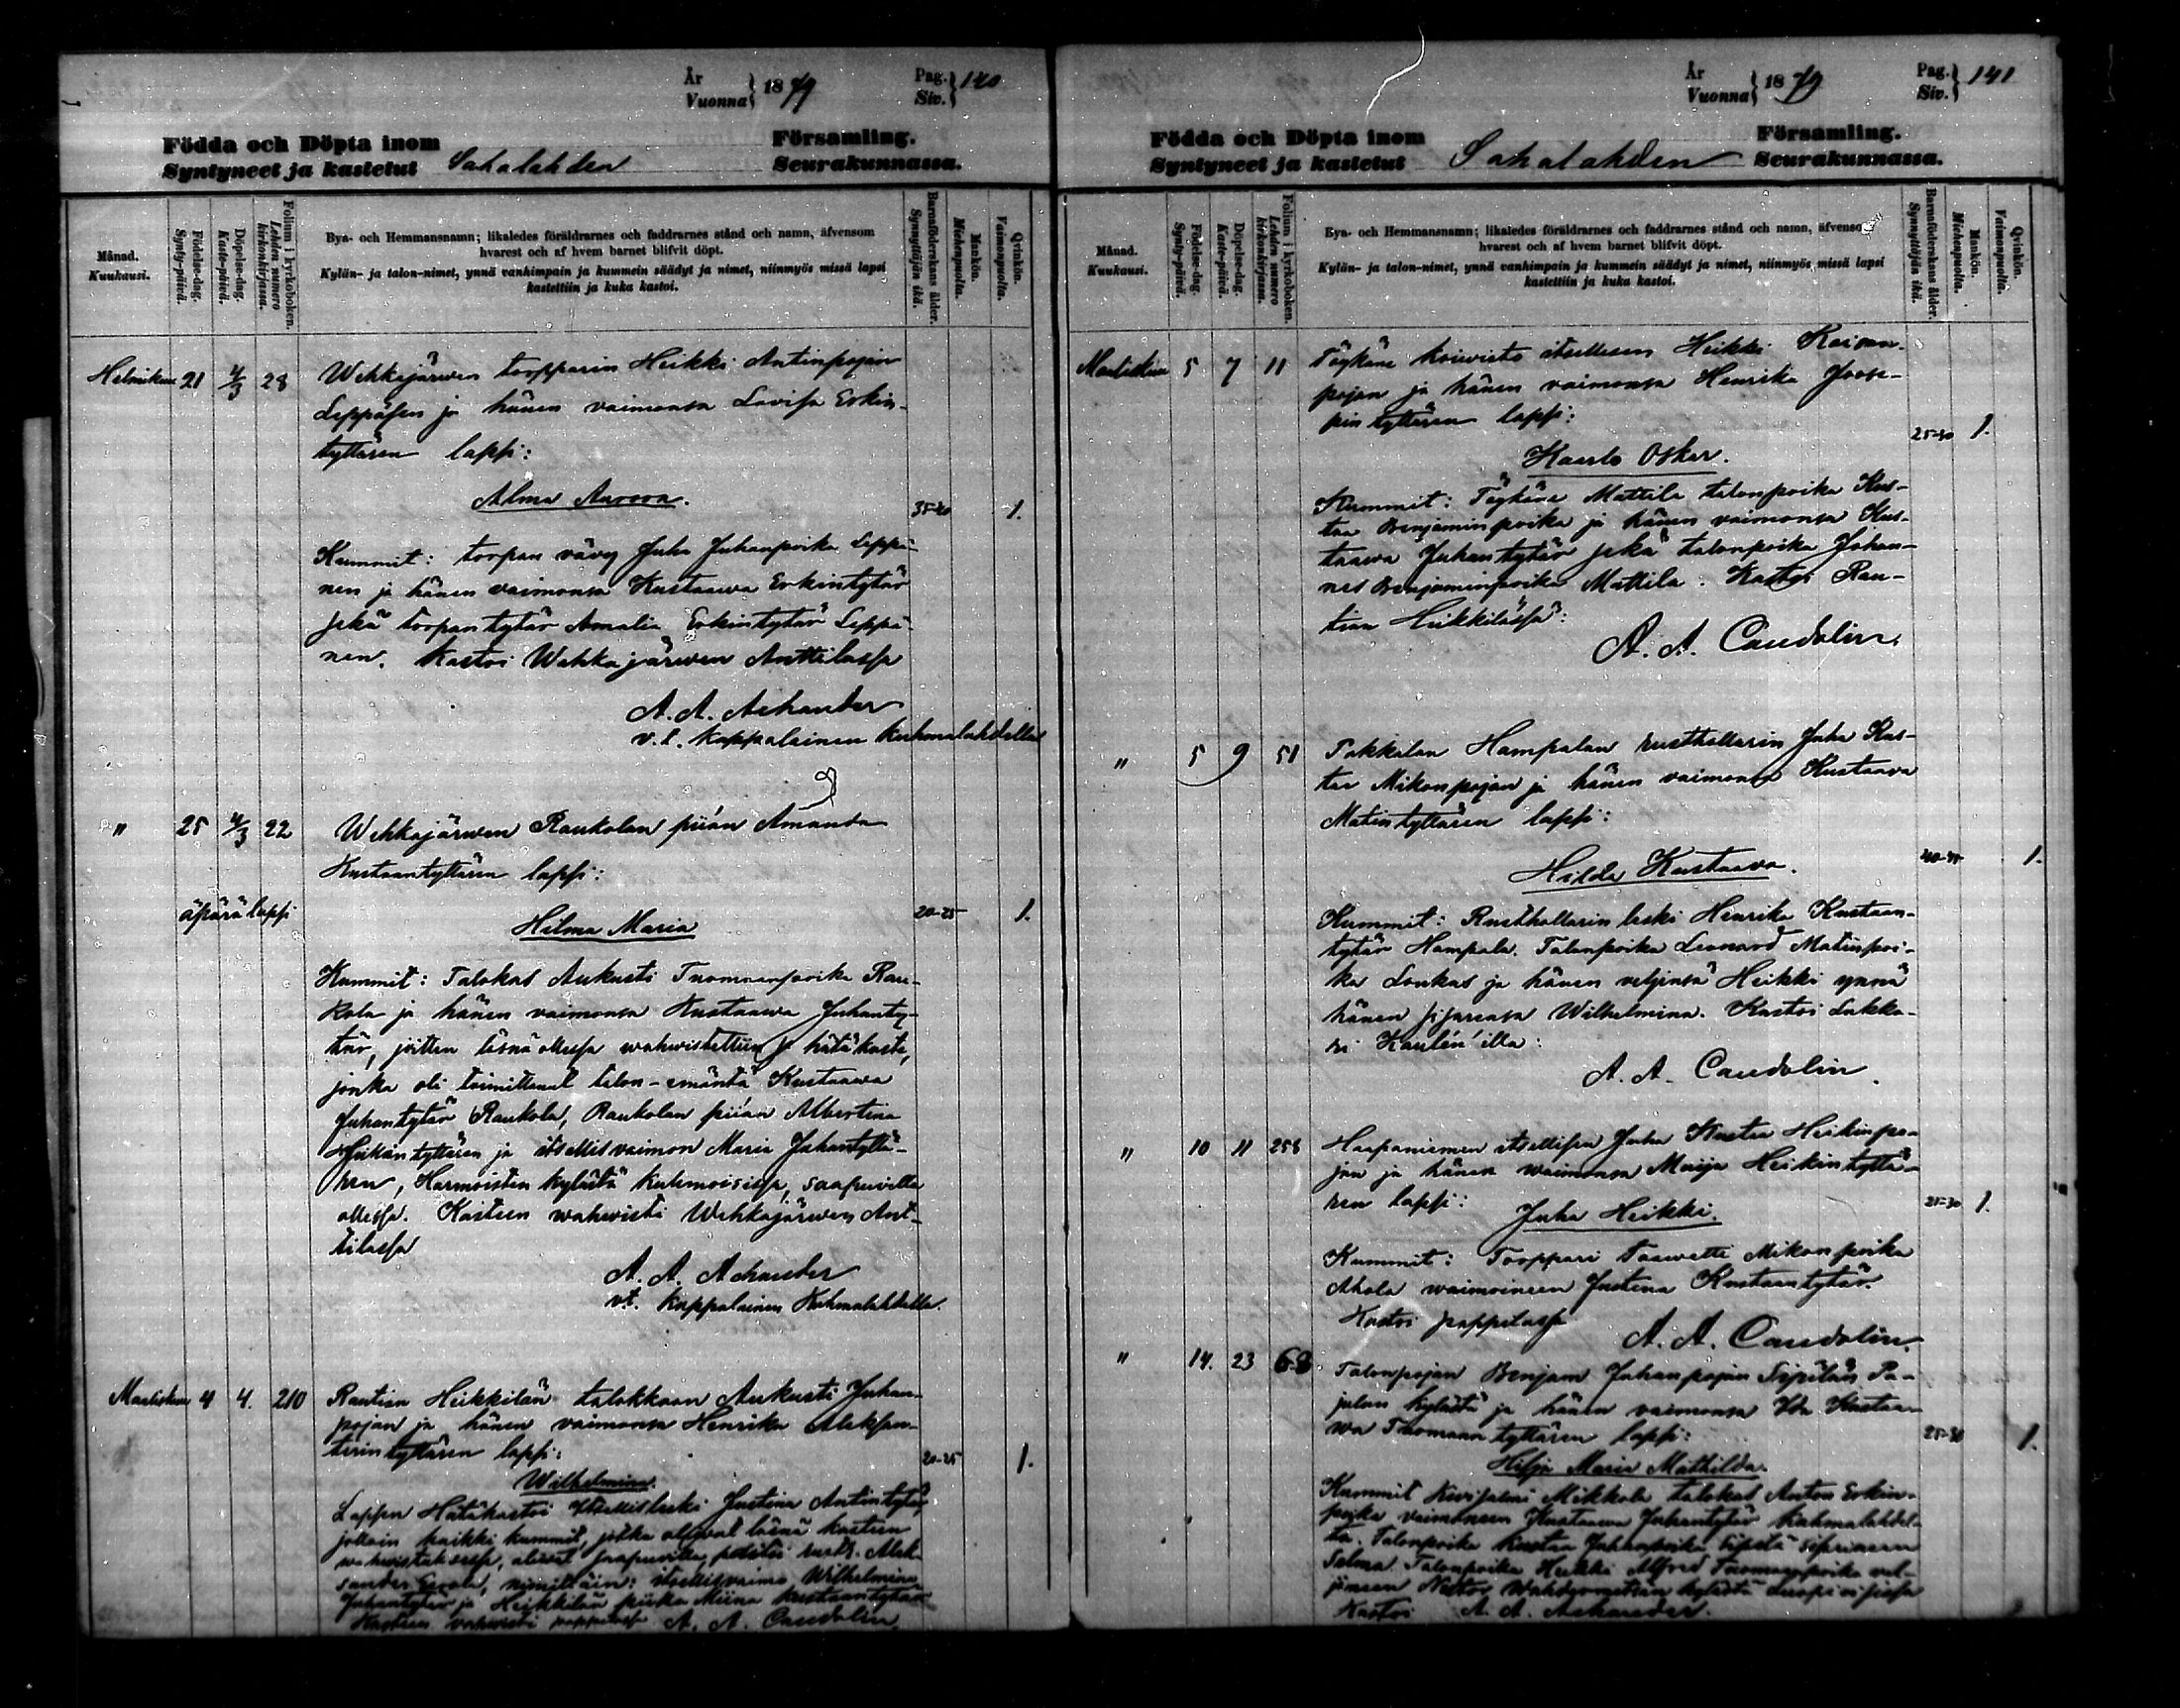 År
Vuonna } 1879
Pag.
Siv. } 140
Födda och Döpta inom
Syntyneet ja kastetut Sahalahden
Församling.
Seurakunnassa.
Månad.
Kuukausi.
Födelse-dag.
Synty-päivä.
Döpelse-dag.
Kaste-päivä.
Folium i kyrkoboken.
Lehden numero
kirkonkirjassa.
Bya- och Hemmansnamn; likaledes föräldrarnes och faddrarnes stånd och namn, äfvensom
hvarest och af hvem barnet blifvit döpt.
Kylän- ja talon-nimet, ynnä vanhimpain ja kummein säädyt ja nimet, niinmyös missä lapsi
kastettiin ja kuka kastoi.
Barnaföderskans ålder.
Synnyttäjän ikä.
Mankön.
Miehenpuolta.
Qvinkön.
Vaimonpuolta.
Helmikuu 21 4/3 28 Wehkajärwen torpparin Heikki Antinpojan
Leppäsen ja hänen vaimonsa Lovisa Erkin-
tyttären lapsi:
Alma Aurora. 35-40 1.
Kummit: torpan vävy Juha Juhanpoika Leppä-
nen ja hänen vaimonsa Kustaawa Erkintytär
sekä torpantytär Amalia Erkintytär Leppä-
nen. Kastoi Wehkajärwen Anttilassa
A. A. Achander
v.t. Kappalainen Kuhmalahdella
" 25 4/3 22 Wehkajärwen Raukolan piian Amanda
Kustaantyttären lapsi:
äpärä lapsi
Hilma Maria 20-25 1.
Kummit: Talokas Aukusti Tuomaanpoika Rau-
kola ja hänen vaimonsa Kustaawa Juhanty-
tär, joitten läsnä ollessa wahwistettiin hätäkaste,
jonka oli toimittanut talon-emäntä Kustaawa
Juhantytär Raukola, Raukolan piian Albertina
Heikintyttären ja itsellisvaimon Maria Juhantyttä-
ren, Harmoisten kylästä Kuhmoisissa, saapuvilla
ollessa. Kasteen wahwisti Wehkajärwen Ant-
tilassa
A. A. Achander
vt. Kappalainen Kuhmalahdella.
Maaliskuu 4 4. 210 Rautian Heikkilän talokkaan Aukusti Juhan-
pojan ja hänen vaimonsa Henrika Aleksan-
terintyttären lapsi: 20-25 1.
Wilhelmina.
Lapsen Hätäkastoi itsellisleski Justina Antintytär,
jolloin kaikki kummit, jotka olivat läsnä kasteen
wahwistuksessa, olivat saapuvilla, paitsi Alek-
sander nimittäin: itsellisvaimo Wilhelmina
Juhantytär ja Heikkilän piika Miina Kustaantytär
Kasteen wahwisti pappilassa A. A. Candolin
År
Vuonna } 1879
Pag.
Siv. } 141
Födda och Döpta inom
Syntyneet ja kastetut Sahalahden
Församling.
Seurakunnassa.
Månad.
Kuukausi.
Födelse-dag.
Synty-päivä.
Döpelse-dag.
Kaste-päivä.
Folium i kyrkoboken.
Lehden numero
kirkonkirjassa.
Bya- och Hemmansnamn; likaledes föräldrarnes och faddrarnes stånd och namn, äfvenso
hvarest och af hvem barnet blifvit döpt.
Kylän- ja talon-nimet, ynnä vanhimpain ja kummein säädyt ja nimet, niinmyös missä lapsi
kastettiin ja kuka kastoi.
Barnaföderskans ålder.
Synnyttäjän ikä.
Mankön.
Miehenpuolta.
Qvinkön.
Vaimonpuolta.
Maaliskuu 5 7 11 Töykäne Koiwisto itsellisen Heikki
pojan ja hänen vaimonsa Henrika Joose-
pintyttären lapsi: 25-30 1.
Kaarlo Oskar.
Kummit: Töykäne Mattila talonpoika Kus-
taa Benjaminpoika ja hänen vaimonsa Kus-
taawa Juhantytär sekä talonpoika Johan-
nes Benjaminpoika Mattila. Kastoi Rau-
tian Heikkilässä:
A. A. Candolin.
" 5 9 51 Tokkalan Hampalan rusthollarin Juha Kus-
taa Mikonpojan ja hänen vaimonsa Kustaava
Matintyttären lapsi:
Hilda Kustaava. 40-45 1.
Kummit: Rusthollarin leski Henrika Kustaan-
tytär Hampala. Talonpoika Leonard Matinpoi-
ka Loukas ja hänen veljensä Heikki ynnä
hänen sisarensa Wilhelmina. Kastoi Lukka-
ri Kaulén'illa:
A. A. Candolin.
" 10 11 258 Haapaniemen itsellisen Juha Kustaa Heikinpo-
jan ja hänen waimonsa Maija Heikintyttä-
ren lapsi: 25-30 1.
Juha Heikki.
Kummit: Torppari Taawetti Mikonpoika
Ahola waimoineen Justina Kustaantytär.
Kastoi pappilassa
A. A. Candolin.
" 14. 23 68 Talonpojan Benjam Juhanpojan Sipilän Pa-
julan kylästä ja hänen vaimonsa Ida Kustaa-
wa Tuomaantyttären lapsi: 25-30 1.
Hilja Maria Mathilda.
Kummit Mikkola talokas Anton Erkin-
poika vaimoneen Kustaawa Juhantytär Kuhmalahdel-
ta. Talonpoika Kustaa Juhanpoika Sipilä
Salma. Talonpoika Heikki Alfred Tuomaanpoika vel-
jineen Nestor kylästä
Kastoi A. A. Achander.